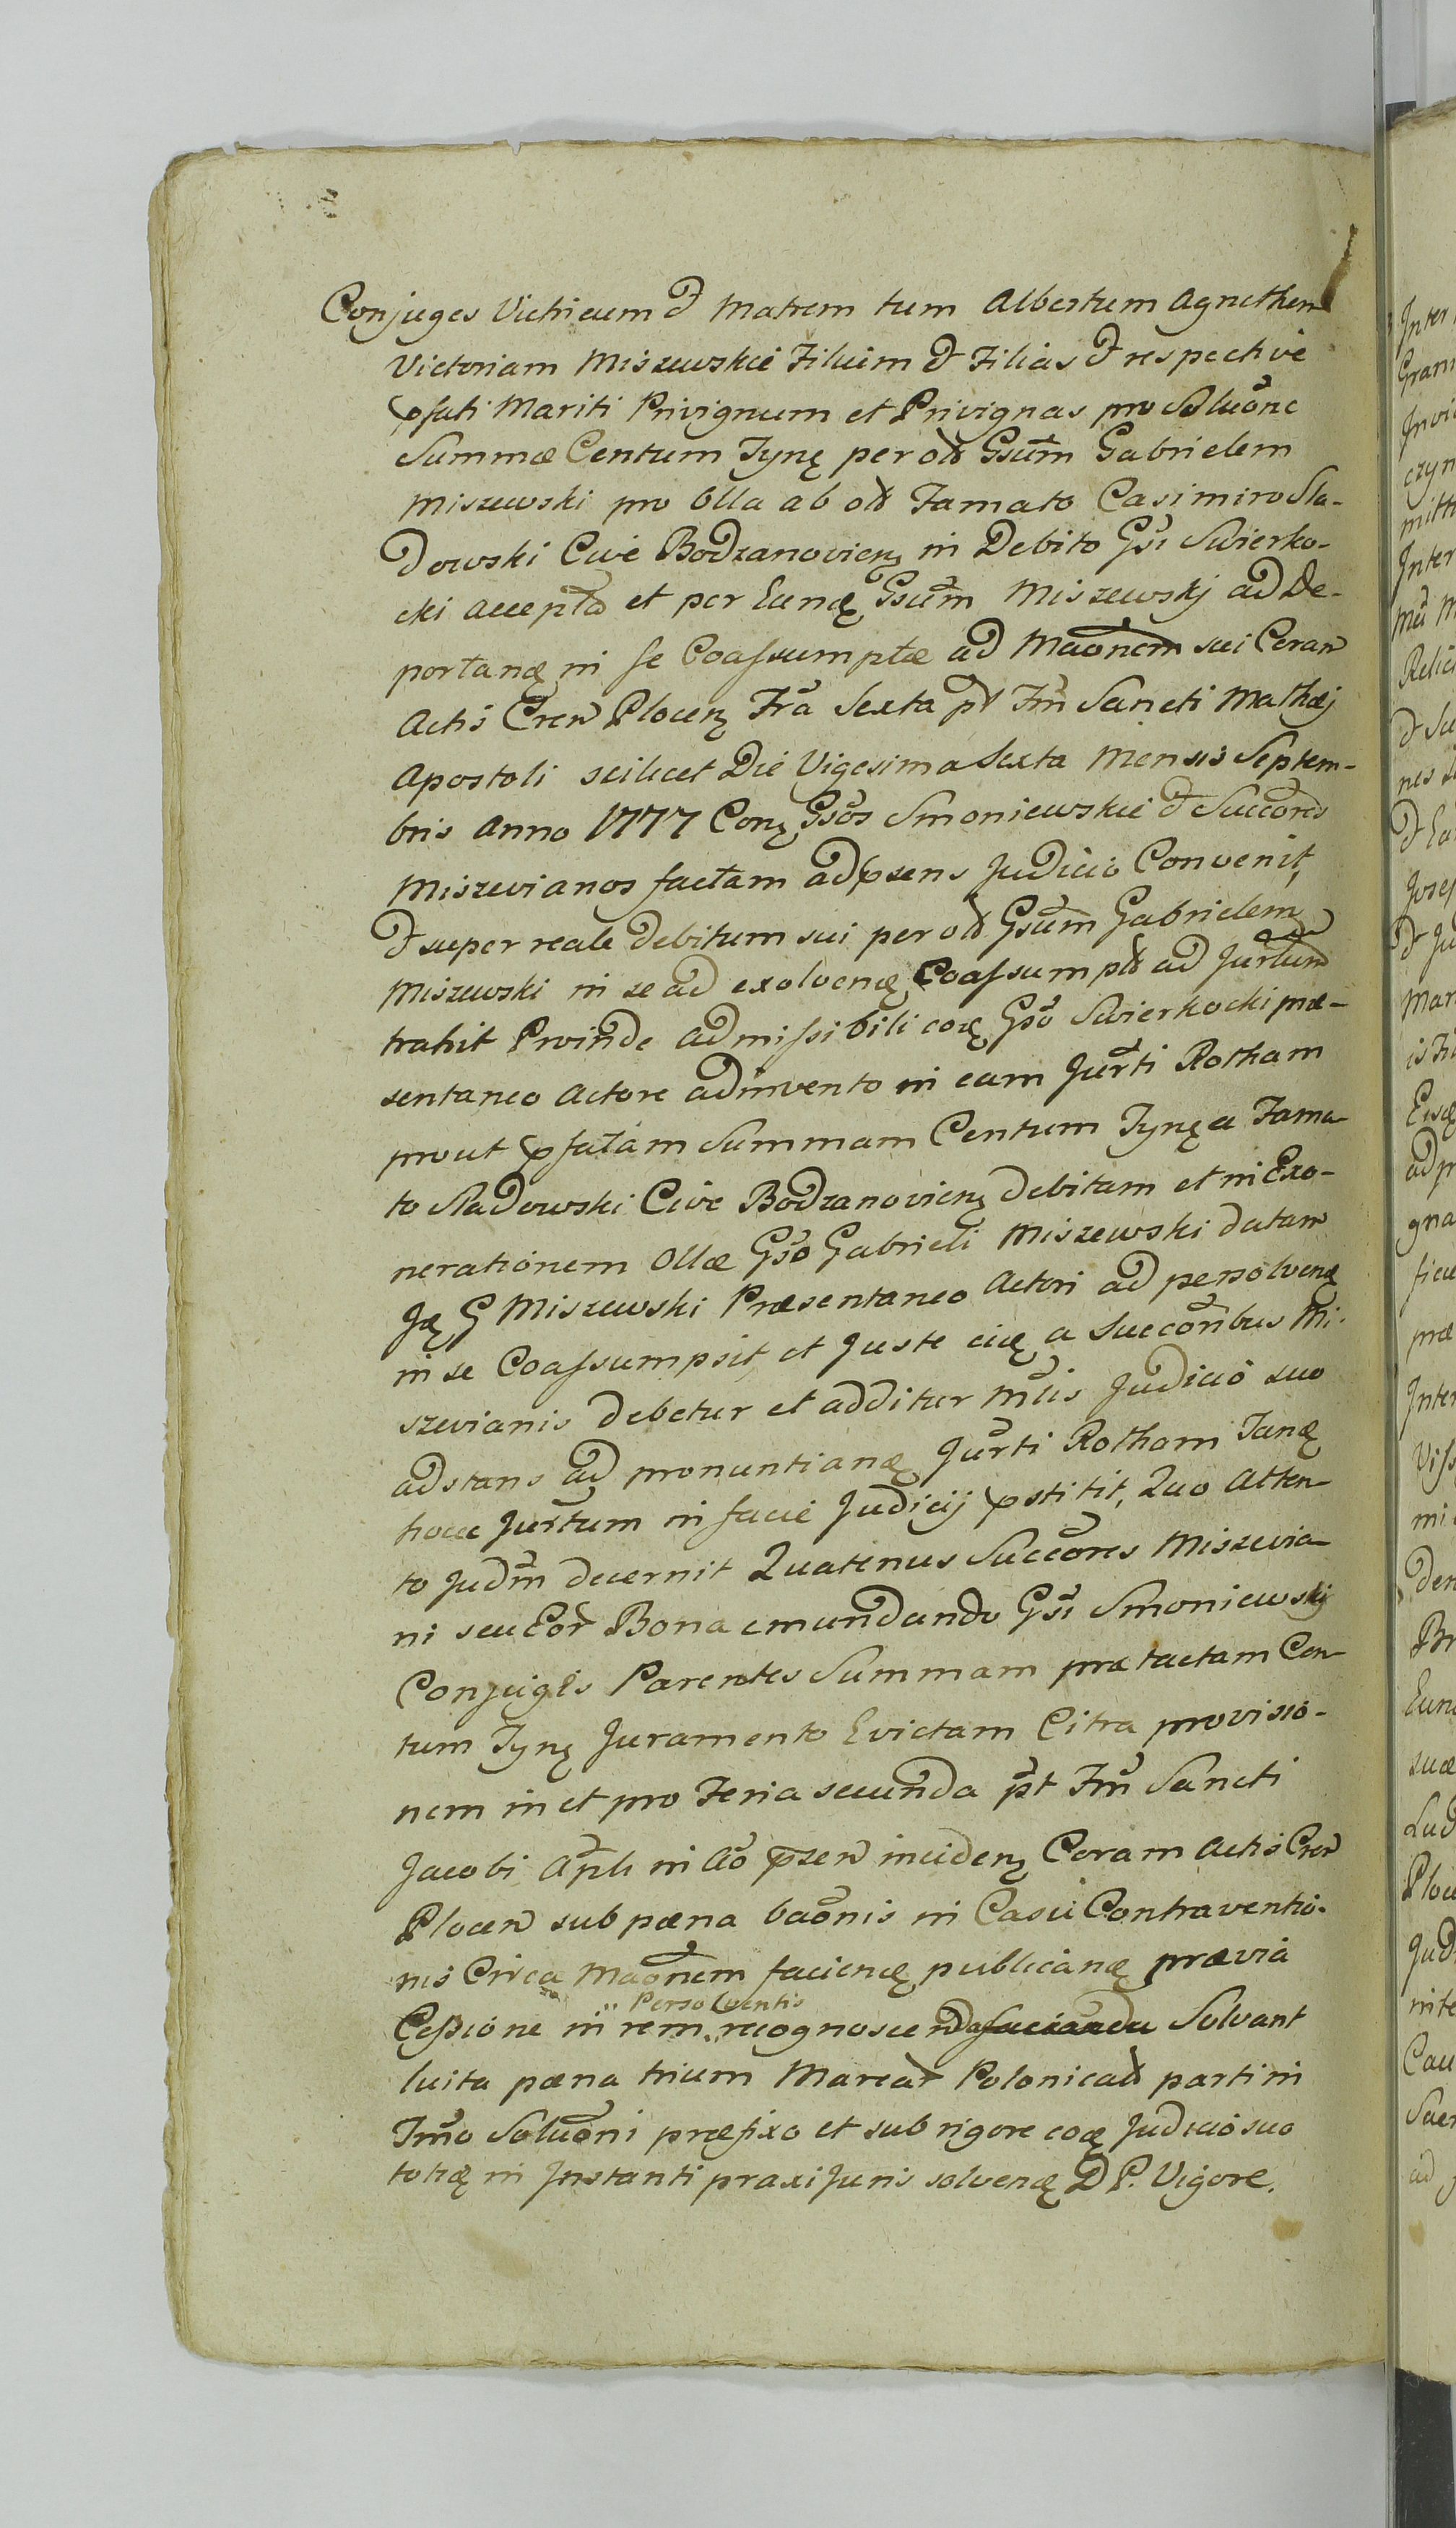 Conjuges Vitricum & Matrem tum Albertum Agnethem
Victoriam Miszewskie Filium & Filias & respective
pfati Mariti Privignum et Privignas pro Soluone
Summæ Centum Tynę per old Gsum Gabrielem
Miszewski pro Olla ab old Famato Casimiro Sla-
dowski Cive Bodzanovienę in Debito Gsi Swierko-
cki accepta et per Eunę Gsum Miszewskj ad De-
portanę in se Coassumptæ ad Maonem sui Coram
Actis Cren Plocenę Fra Sexta pt Fm Sancti Mathæj
Apostoli scilicet Die Vigesima Sexta Mensis Septem-
bris Anno 1777 Conę Gsos Smoniewskie & Succores
Miszevianos factam ad psens Judicio Convenit,
& super reale debitum sui per old Gsum Gabrielem
Miszewski in se ad exolvenę Coassumptt ad Jurtum
trahit Proinde admissibili coę Gso Swierkocki præ-
sentaneo Actore adinvento in eam Jurti Rotham
prout pfatam Summam Centum Tynę a Fama-
to Sladowski Cive Bodzanovienę debitam et in Exo-
nerationem Ollæ Gso Gabrieli Miszewski datam
Ję G Miszewski Præsentaneo Actori ad persolvenę
in se Coassumpsit, et Juste eiuę a Succoribus Mi-
szevianis debetur et additur Mlis Judicio suo
adstans ad pronuntianę Jurti Rotham Tanę
hocce Jurtum in facie Judicij pstitit, Quo Atten-
to Judm decernit Quatenus Succores Miszevia-
ni seu Eor Bona emundando Gsi Smoniewskj
Conjuges Parentes Summam prætactam Cen-
tum Tynę Juramento Evictam Citra provisio-
nem in et pro Feria secunda pt Fm Sancti
Jacobi Apli in Ao pzen incidenę Coram Actis Cren
Plocen sub pæna baonis in Casu Contraventio-
nis Circa Maonem faciencę publicanę prævia
Cessione in rem Persolventis recognoscenda facianda Solvant
luita pæna trium Marcar Polonicalt parti in
Fmo Soluoni præfixo et sub rigore eoę Judicio suo
totię in Instanti praxi Juris solvenę D P. Vigore.